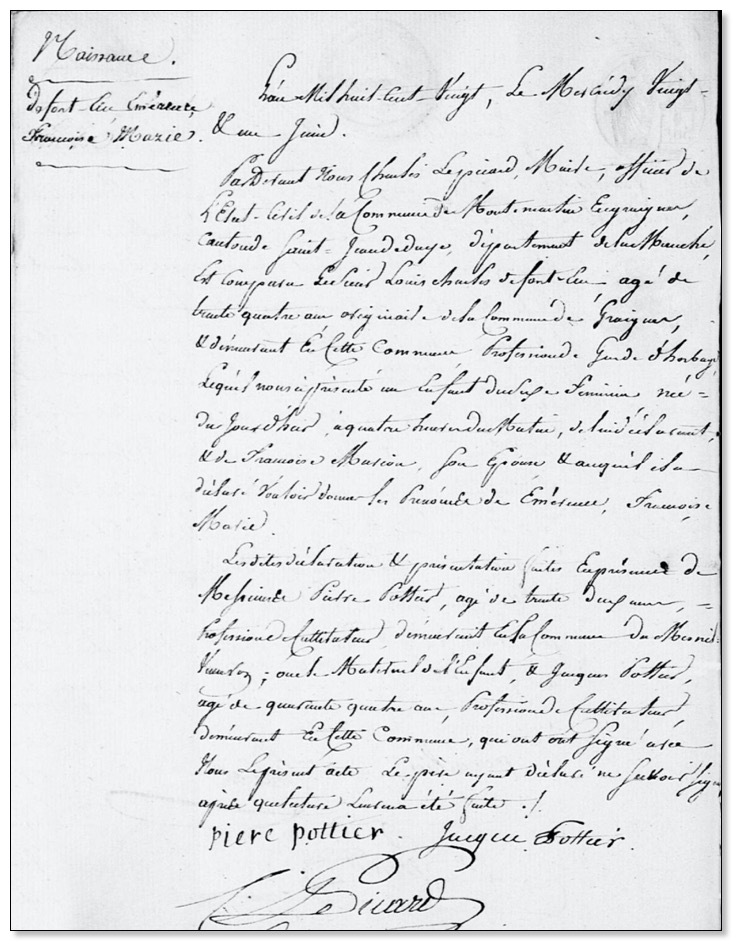 Naissance.
Defontenu Émérance
Francoise Marie.
L'an Mil huit-cent-Vingt, Le Mercredy Vingt-
& un Juin.
Par Devant Nous Charles Lepicard, Maire, officier de
L'Etat-Civil de la Commune de Montmartin En graignes,
Canton de Saint-Jean de daye, département de la Manche,
Est Comparu Le Sieur Louis Charles agé de
trente quatre ans originaire de la Commune de Graignes,
& demeurant En Cette Commune, Profession de Garde d'herbages
Lequel nous a présenté un Enfant du Sexe Féminin née =
du Jour d'hui, à quatre heures du Matin, de lui déclarant,
& de Francoise Marion, Son Epouse & auquel il a
déclaré Vouloir donner les Prénoms de Emérance, Francoise
Marie.
Les dites déclaration & présentation faites En présence de
Messieurs Pierre Pottier, agé de trente ans, =
Profession de Cultivateur, demeurant En la Commune du Mesnil-
; oncle Maternel de l'Enfant, & Jacques Pottier,
agé de quarante quatre ans, Profession de Cultivateur,
demeurant En Cette Commune, qui ont ont Signé avec
Nous Le présent acte Le père ayant déclaré ne Savoir Signer
après que lecture Leur en a été faite ./.
piere pottier. Jacque Pottier.
Le Picard